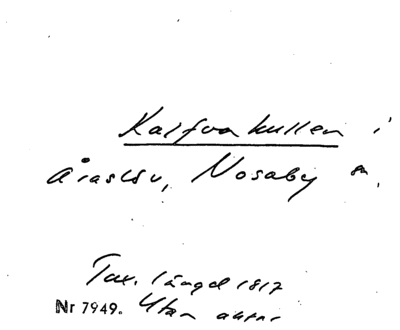 Kalfvakullen i
Araslöv, Nosaby sn.
Tax. längd 1817
Nr 7949. Utan